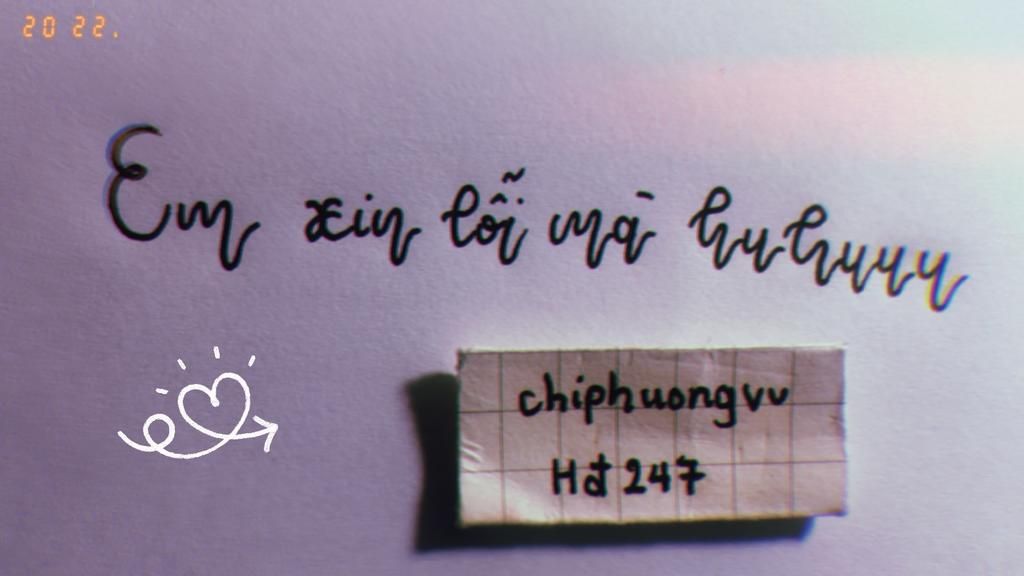 20 22.
Em xin lỗi mà huhuuuu
chiphuongvu
Hđ 247